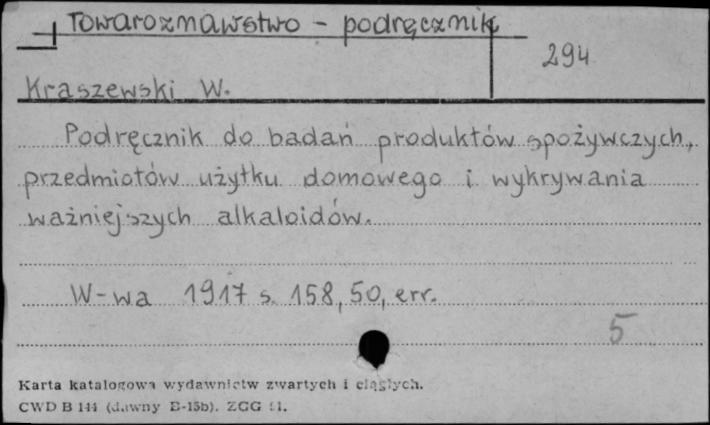 Towaroznawstwo - podręcznik
294
Kraszewski W.
Podręcznik do badań produktów spożywczych,
przedmiotów użytku domowego i wykrywania
ważniejszych alkaloidów.
W-wa 1917 s. 158, 50, err.
5
Karta katalogowa wydawnictw zwartych i ciągłych.
CWD B 144 (dawny B-15b). ZGG